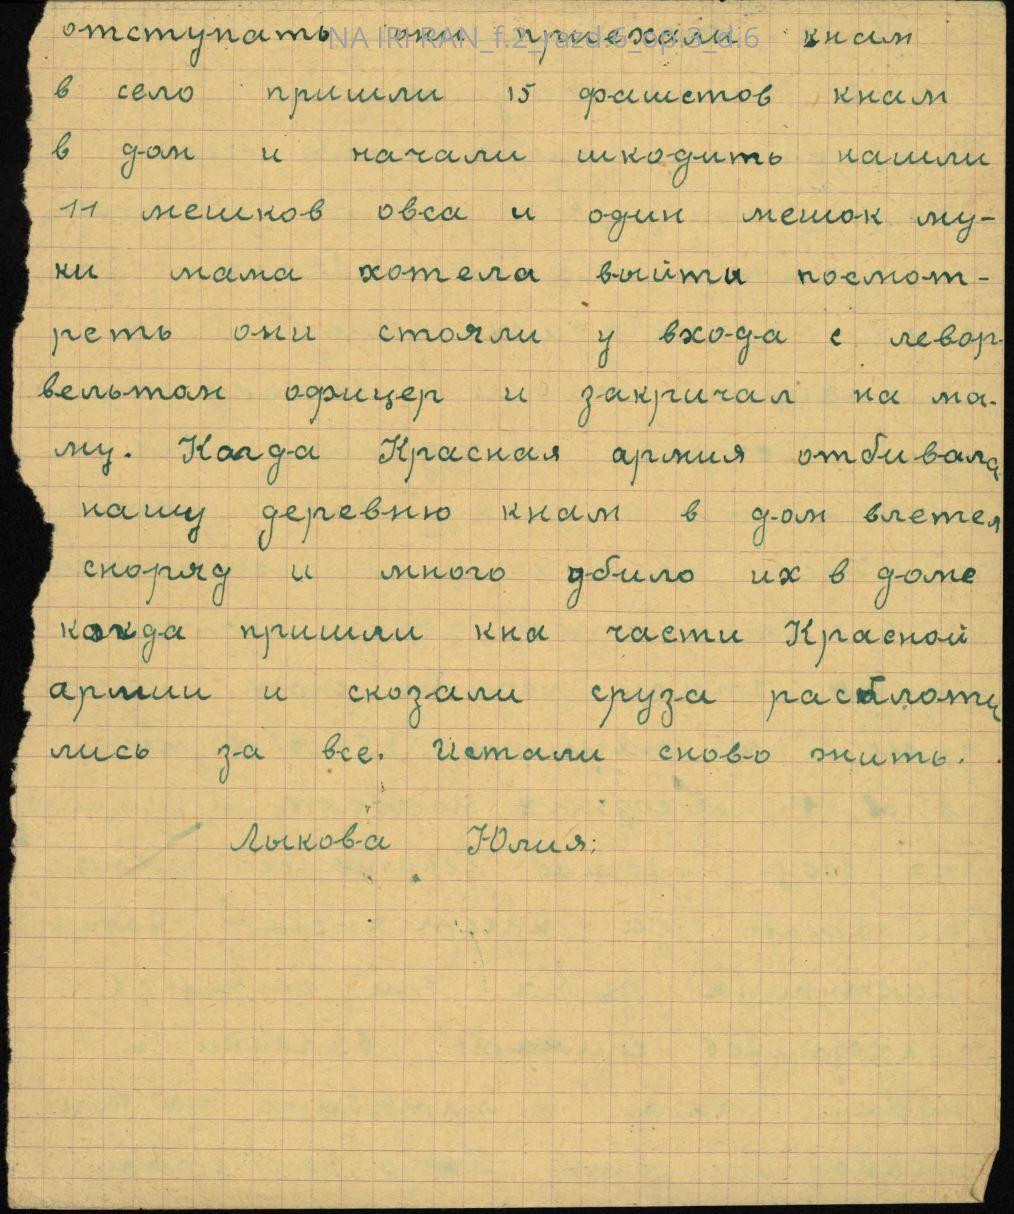 отступать они приехали кнам
NA IRI RAN_f.2_razd.6_op.3_d.6
в село пришли 15 фашстов кнам
в дом и начали шкодить нашли
11 мешков овса и один мешок му-
ки мама хотела выйти посмот-
реть они стояли у входа с левор-
вельтом офицер и закричал на ма-
му. Когда Красная армия отбивала
нашу деревню кнам в дом влетел
сноряд и много убило их в доме
когда пришли кна части Красной
армии и скозали сруза расплоти
лись за все. Истали сново жить.
Лыкова Юлия;